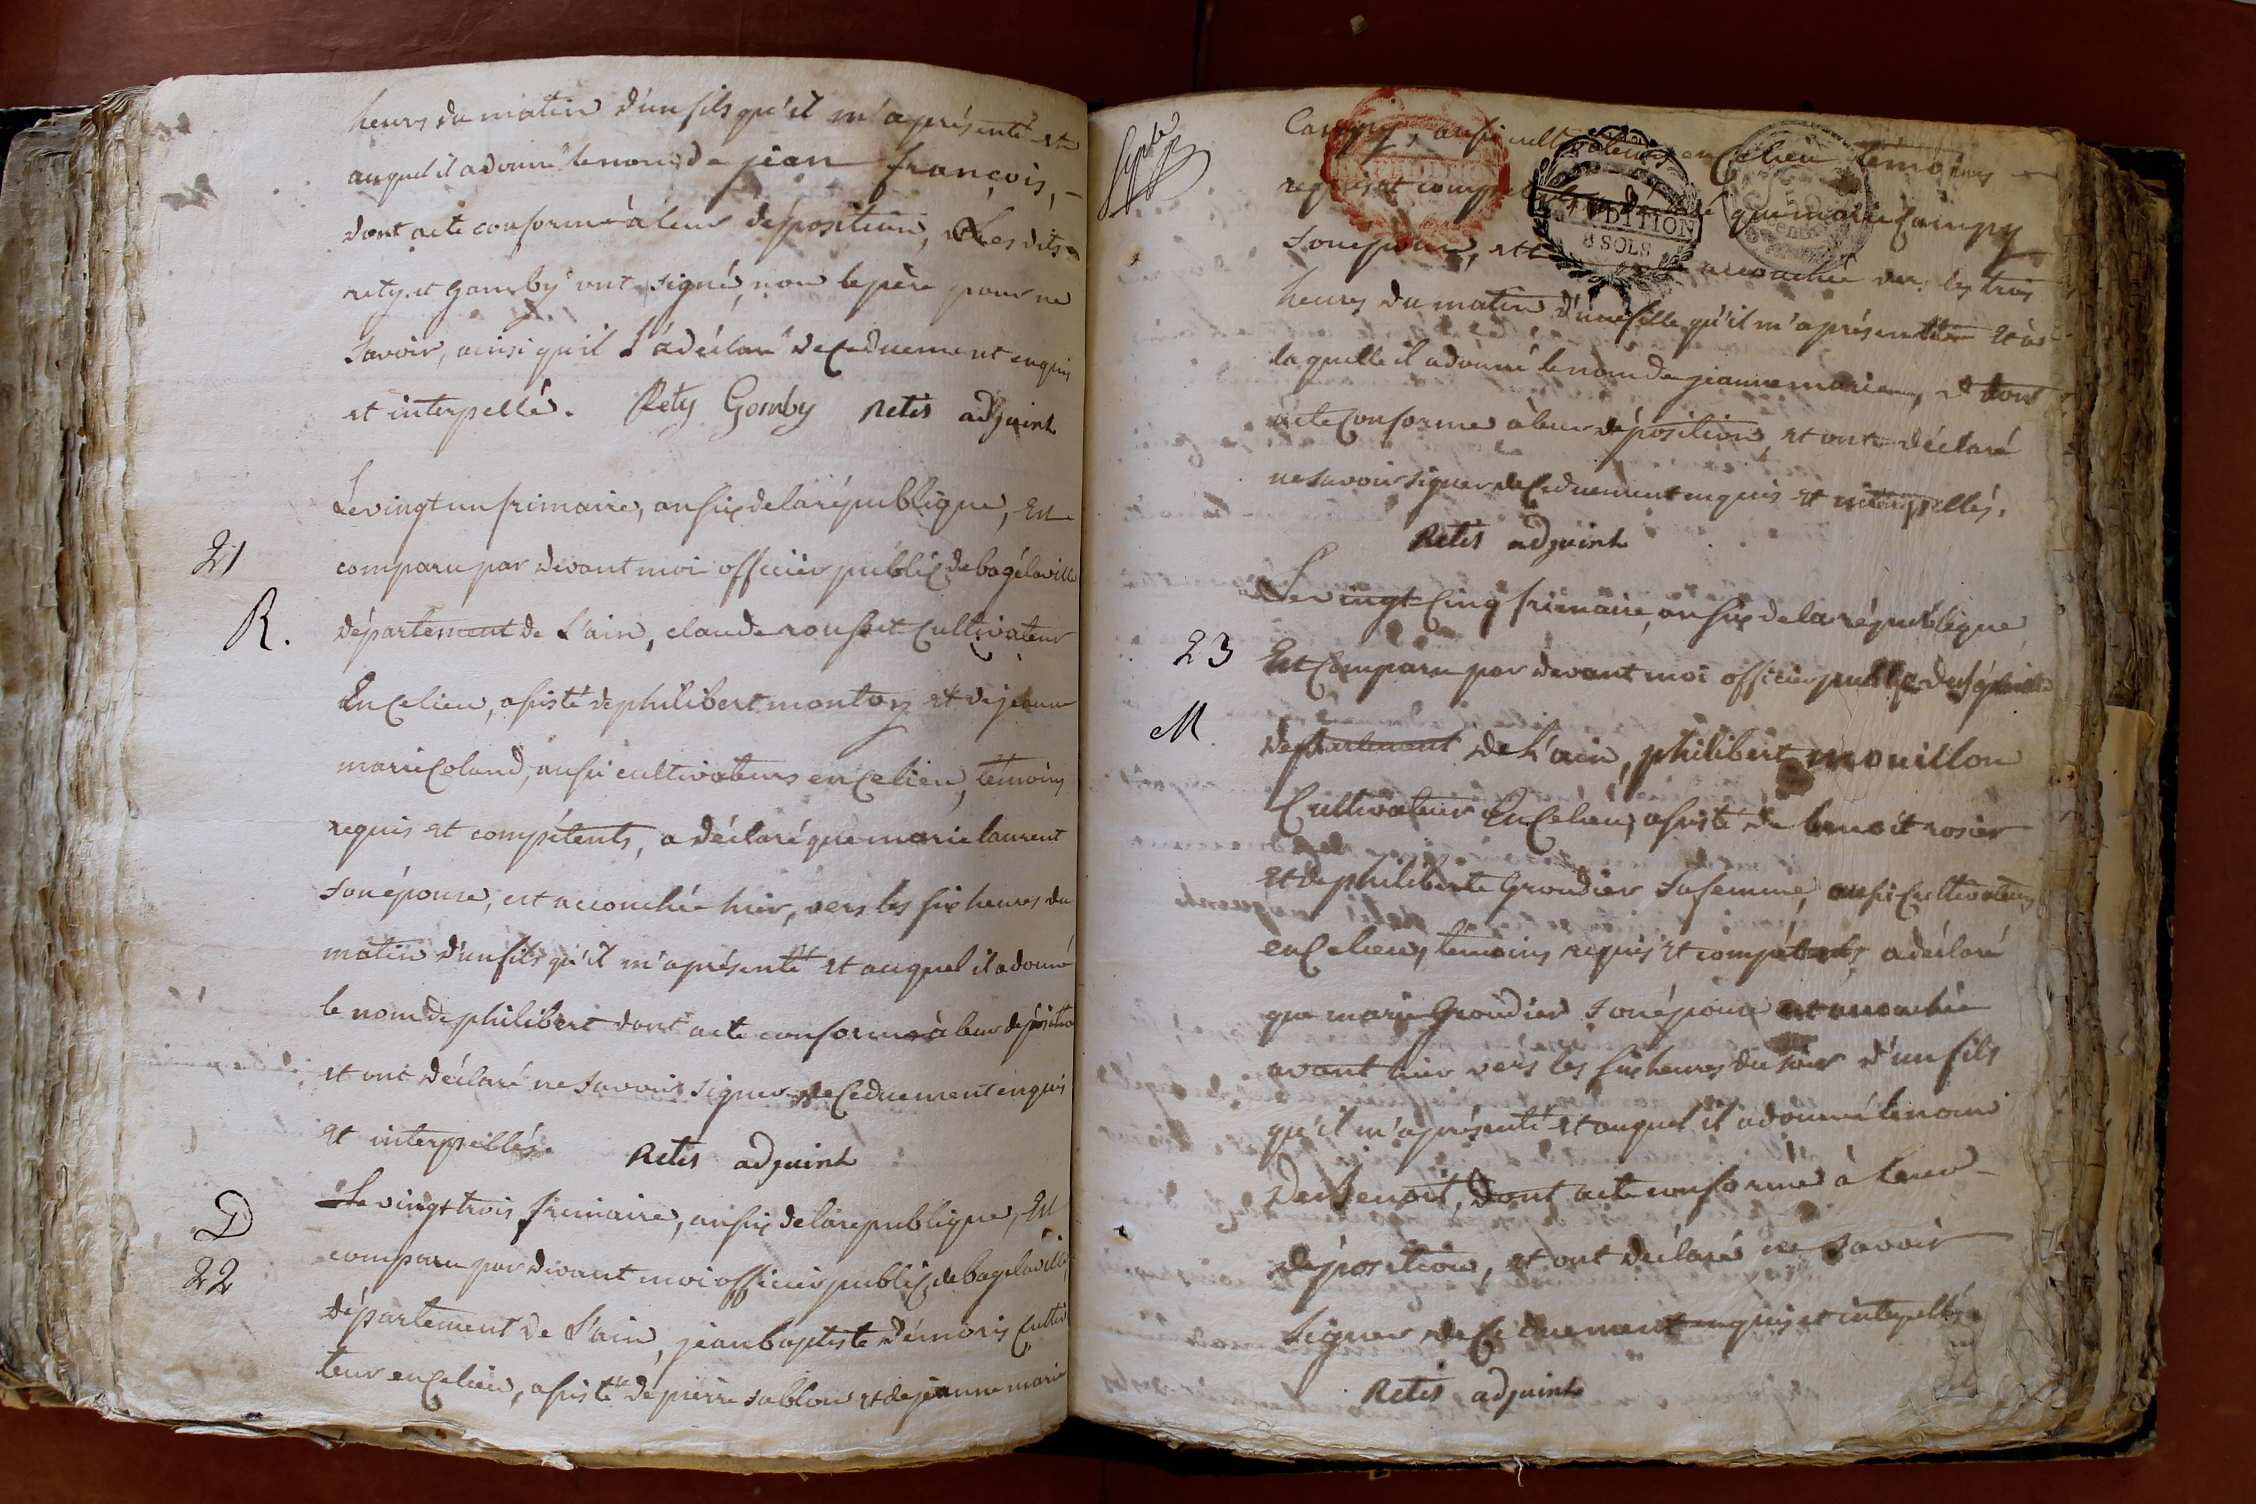 heures du matin d'un fils qu'il m'a présenté et
auquel il a donné le nom de jean françois,
dont acte conforme à leur déposition, Les dits
rety et gomby ont signé, non le père pour ne
savoir, ainsi qu'il l'a déclaré de ce duement enquis
et interpellé. Rety Gomby Retis adjoint
Le vingt un frimaire, an six de la république, Est
21
comparu par devant moi officier public de bagé la ville
R.
département de L'ain, claude rousset cultivateur
En ce lieu, assisté de philibert montoy et de jeanne
marie Coland, aussi cultivateurs en ce lieu, témoins
requis et compétents, a déclaré que marie laurent
son épouse, est accouchée hier, vers les six heures du
matin d'un fils qu'il m'a présenté et auquel il a donné
le nom de philibert dont acte conforme à leur déposition
et ont déclaré ne savoir signer de ce duement enquis
et interpellés. Retis adjoint
D
Le vingt trois frimaire, an six de la republique, Est
22
comparu par devant moi officier public de bagé la ville
département de L'ain, jean baptiste démoris cultiva
teur en ce lieu, assisté de pierre sablon et de jeanne marie
Campy, aussi cultivateurs en ce lieu témoins
requis et que marie Campy
son épouse, est accouchée vers les trois
EXPÉDITION
8 SOLS
heures du matin d'une fille qu'il m'a présentée et à
laquelle il a donné le nom de jeanne marie, dont
acte conforme à leur déposition, et ont déclaré
ne savoir signer de ce duement enquis et interpellés.
Retis adjoint
Le vingt cinq frimaire, an six de la république
23
Est comparu par devant moi officier public
M
département de L'ain, philibert mouillon
Cultivateur En ce lieu, assisté de benoit rosier
et de philiberte Grondier sa femme, aussi cultivateurs
en ce lieu, témoins requis et compétents a déclaré
que marie Grondier son épouse est accouchée
avant hier vers les six heures du soir d'un fils
qu'il m'a présenté et auquel il a donné le nom
De Benoit, dont acte conforme à leur
déposition, et ont déclaré ne savoir
signer de ce duement enquis et interpellés
Retis adjoint